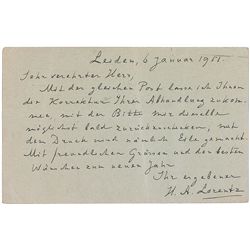 Leiden, 6 Januar 1911
Sehr verehrter Herr,
Mit der gleichen Post lasse ich Ihnen
die Korrektur Ihrer Abhandlung zukom-
men, mit der Bitte mir dieselbe
möglichst bald zurückzusenden, mit
dem Druck wird nämlich Eile gemacht.
Mit freundlichen Grüssen und den besten
Wünschen zum neuen Jahr
Ihr ergebener
H. A. Lorentz